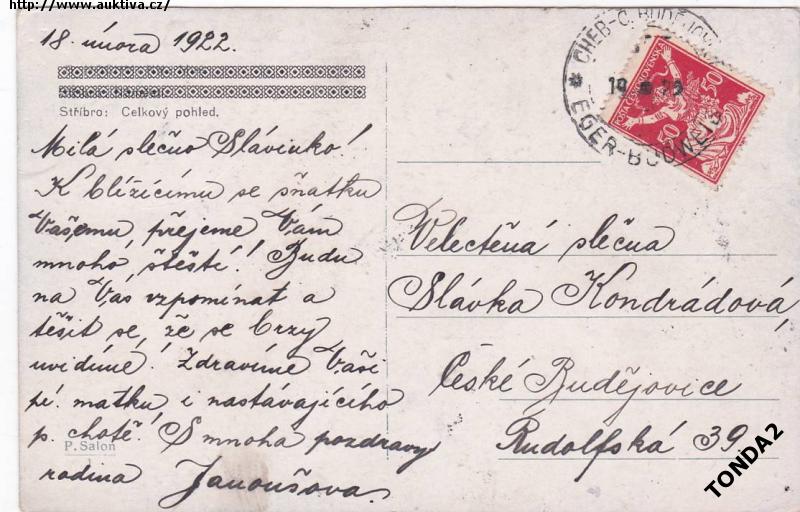 http://www.auktiva.cz/
18. února 1922.
Stříbro: Celkový pohled.
Milá slečno Slávinko!
K blížícímu se sňatku
Vašemu přejeme Vám
mnoho štěstí! Budu
na Vás vzpomínat a
těšit se, že se brzy
uvidíme! Zdravíme Vaši
pí. matku i nastávajícího
p. chotě! S mnoha pozdravy
rodina Janoušova.
P. Salon
* CHEB-Č. BUDĚJOV
EGER-BUDWEIS
19
POŠTA ČESKOSLOVENSKÁ
50
50
Velectěná slečna
Slávka Kondrádová,
České Budějovice
Rudolfská 39
TONDA2